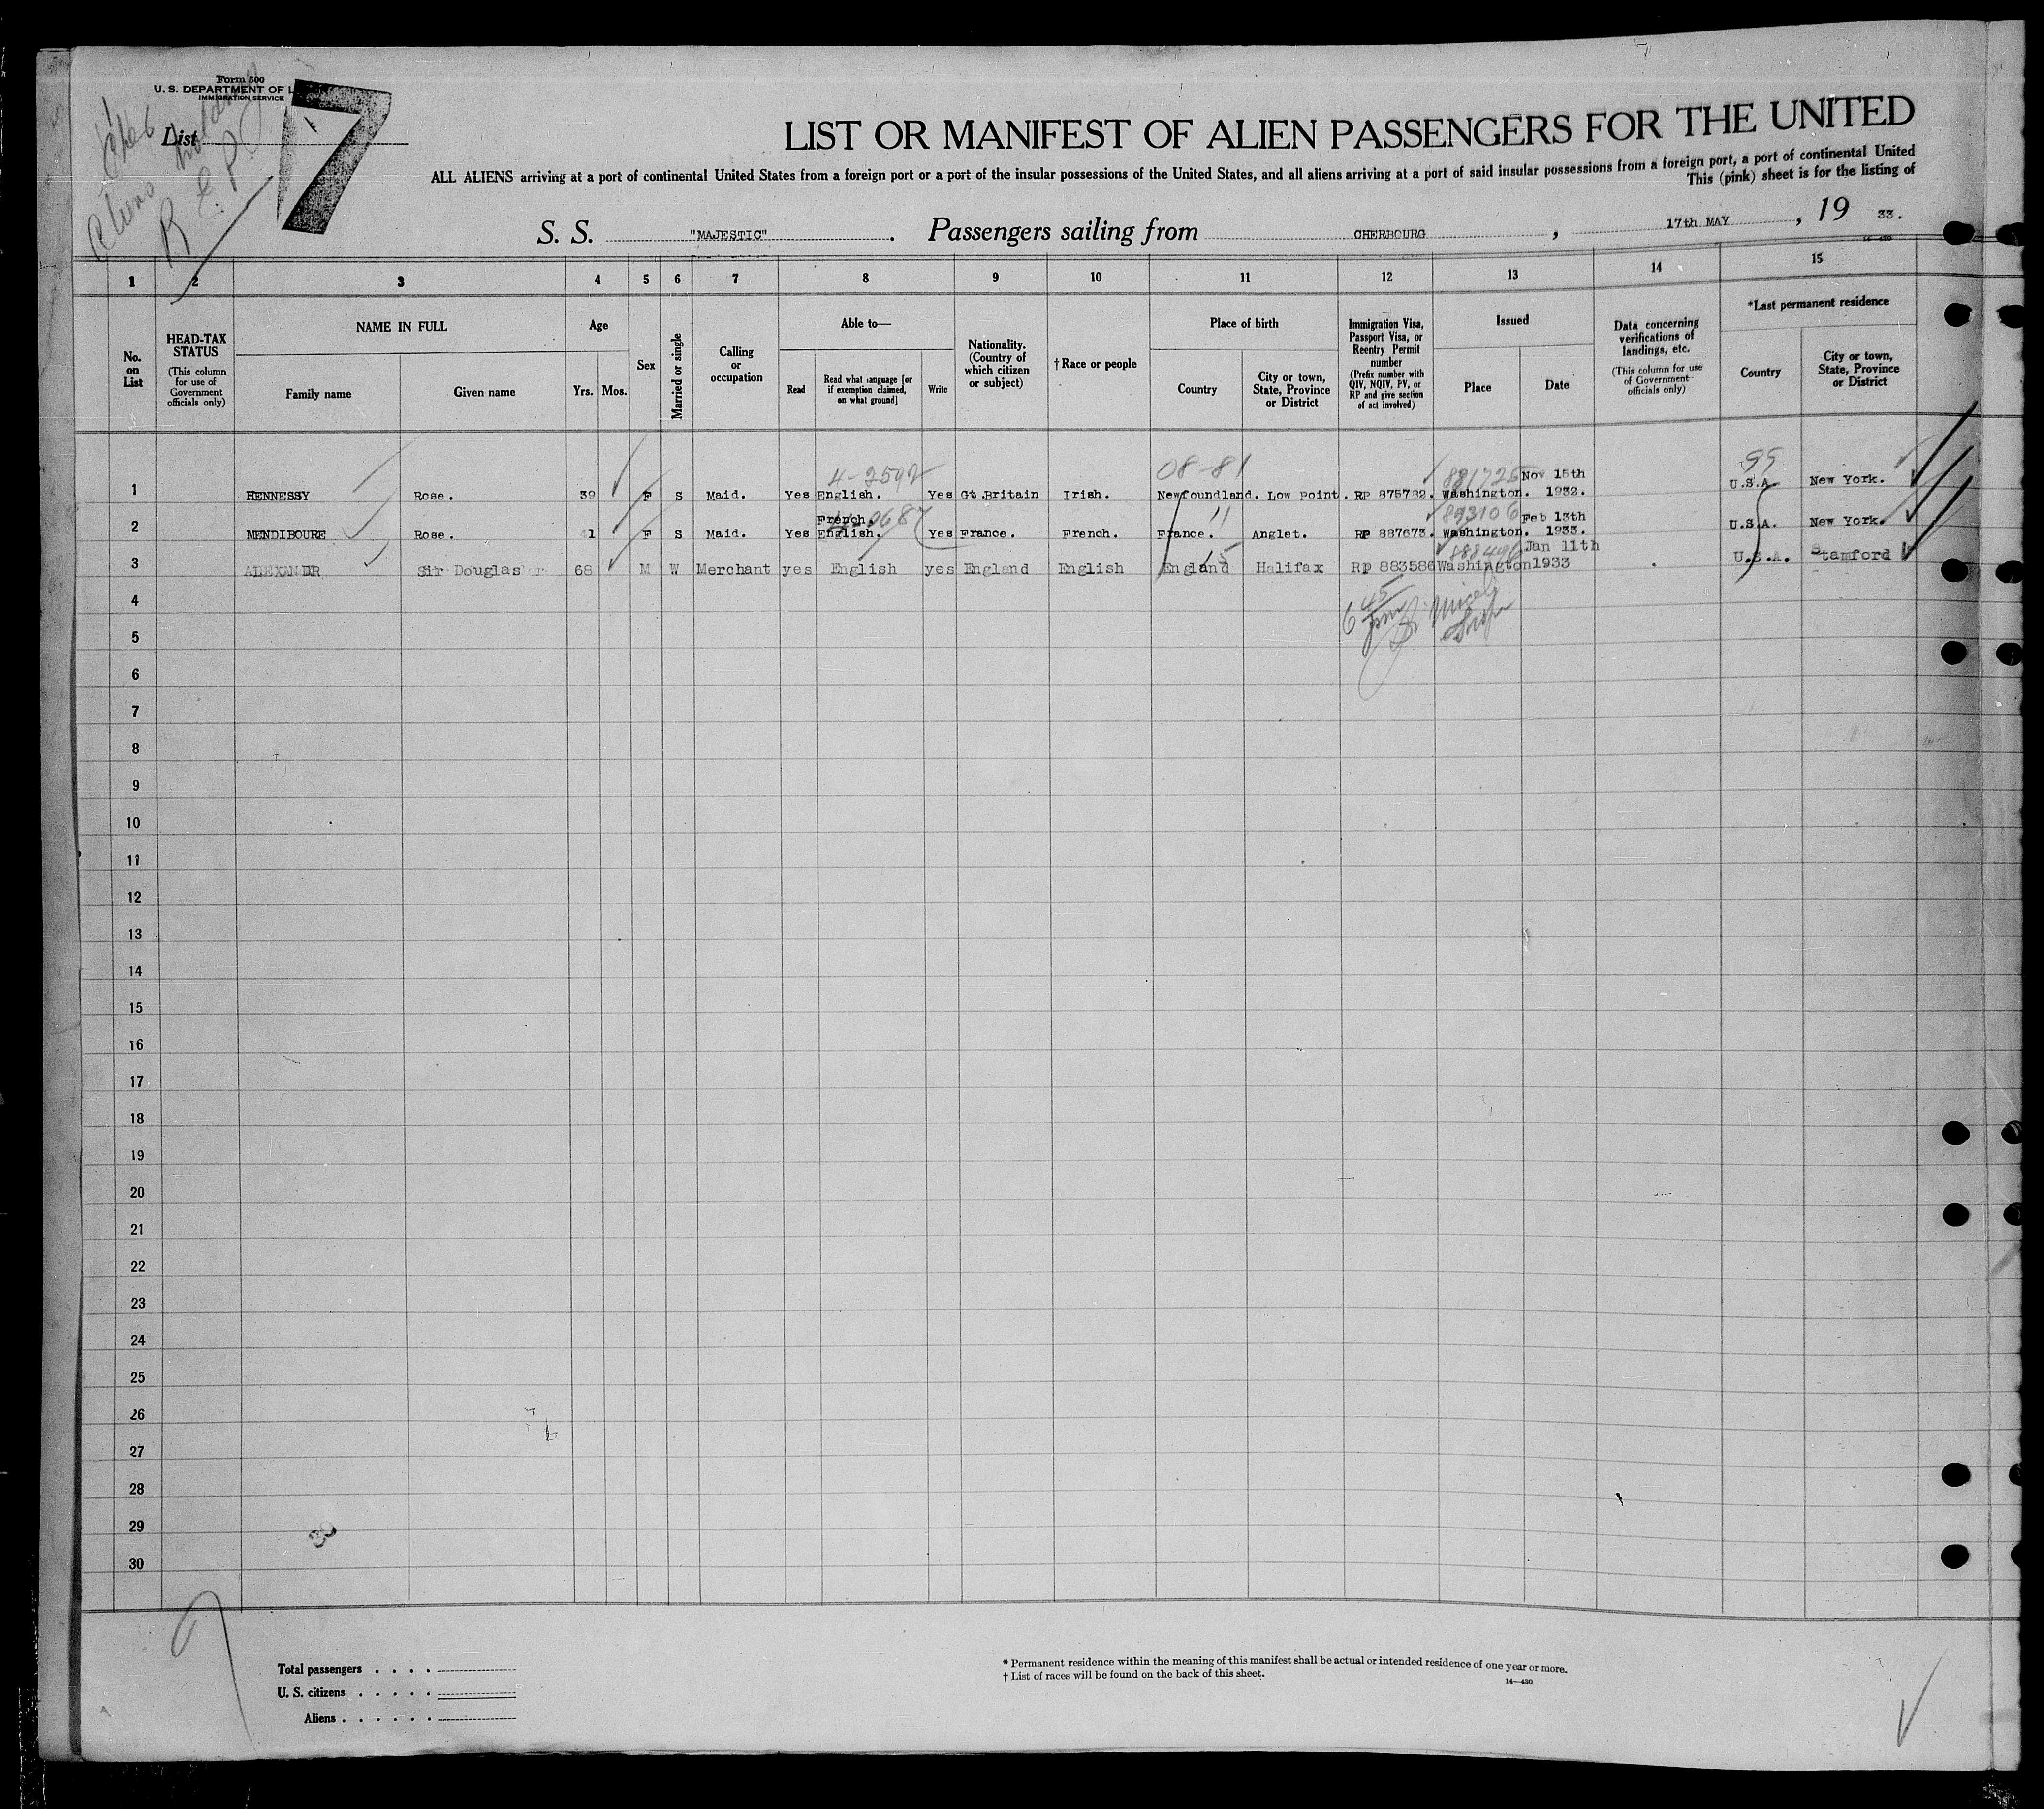 Form 500
U. S. DEPARTMENT OF L
IMMIGRATION SERVICE
List
7
LIST OR MANIFEST OF ALIEN PASSENGERS FOR THE UNITED
ALL ALIENS arriving at a port of continental United States from a foreign port or a port of the insular possessions of the United States, and all aliens arriving at a port of said insular possessions from a foreign port, a port of continental United
This (pink) sheet is for the listing of
S. S. "MAJESTIC". Passengers sailing from CHERBOURG, 17th MAY, 19 33.
1 2 3 4 5 6 7 8 9 10 11 12 13 14 15
No. on List
HEAD-TAX STATUS (This column for use of Government officials only)
NAME IN FULL
Family name
Given name
Age
Yrs. Mos.
Sex
Married or single
Calling or occupation
Able to—
Read
Read what language [or if exemption claimed, on what ground]
Write
Nationality. (Country of which citizen or subject)
†Race or people
Place of birth
Country
City or town, State, Province or District
Immigration Visa, Passport Visa, or Reentry Permit number (Prefix number with QIV, NQIV, PV, or RP and give section of act involved)
Issued
Place
Date
Data concerning verifications of landings, etc. (This column for use of Government officials only)
*Last permanent residence
Country
City or town, State, Province or District
4-2592 08-81 99
1 HENNESSY Rose. 39 F S Maid. Yes English. Yes Gt.Britain Irish. Newfoundland. Low Point. RP 875782. Washington. Nov 15th 1932. U.S.A. New York.
11 893106
2 MENDIBOURE Rose. 41 F S Maid. Yes French. English. Yes France. French. France. Anglet. RP 887673. Washington. Feb 13th 1933. U.S.A. New York.
15
3 ALEXANDR Sir Douglas 68 M W Merchant yes English yes England English England Halifax RP 883586 Washington Jan 11th 1933 U.S.A. Stamford
4
5
6
7
8
9
10
11
12
13
14
15
16
17
18
19
20
21
22
23
24
25
26
27
28
29
30
Total passengers . . . .
U. S. citizens . . . . .
Aliens . . . . . .
* Permanent residence within the meaning of this manifest shall be actual or intended residence of one year or more.
† List of races will be found on the back of this sheet.
14—430